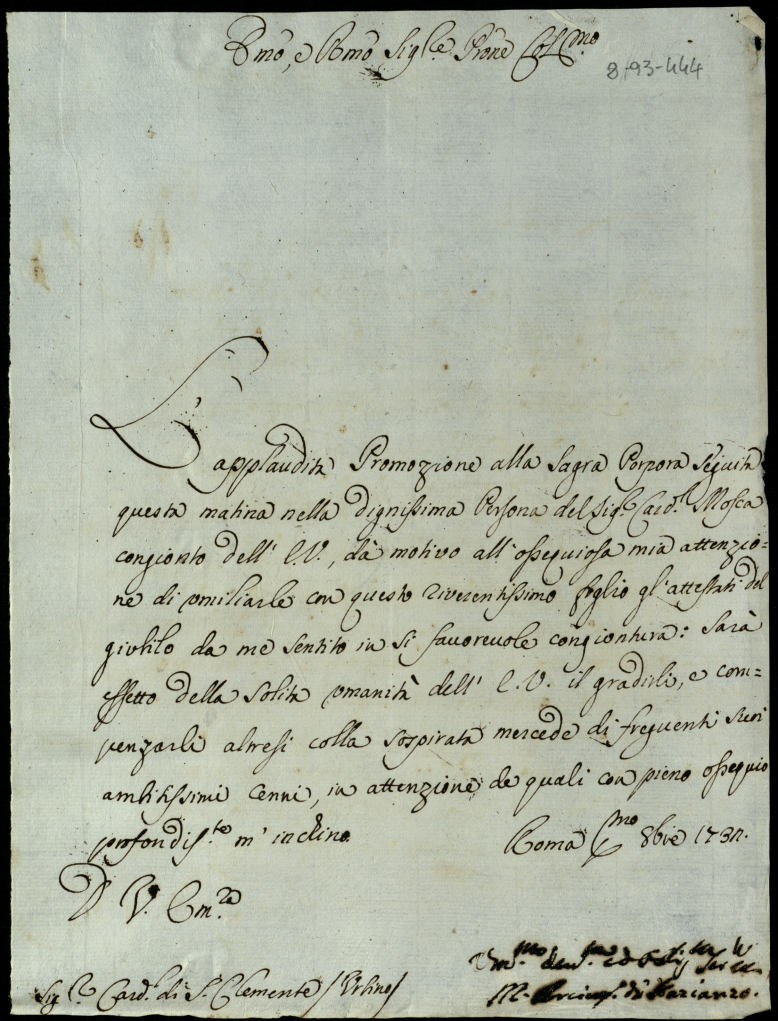 Emo, e Rmo Sig.re Prone Col.mo
8/93-444
L'applaudita Promozione alla Sagra Porpora seguita
questa matina nella dignissima Persona del Sig.r Card.l Mosca
congionto dell' E.V., dà motivo all' ossequiosa mia attenzio=
ne di umiliarle con questo riverentissimo foglio gl'attestati del
giubilo da me sentito in si favorevole congiontura: Sarà
effetto della solita umanità dell' E.V. il gradirli, e com=
penzarli altresi colla sospirata mercede di frequenti suoi
ambitissimi cenni, in attenzione de quali con pieno ossequio
profondis.te m' inchino.
Roma P.mo 8bre 173
D V. Em.za
Sig.r Card.l di S. Clemente / Urbino /